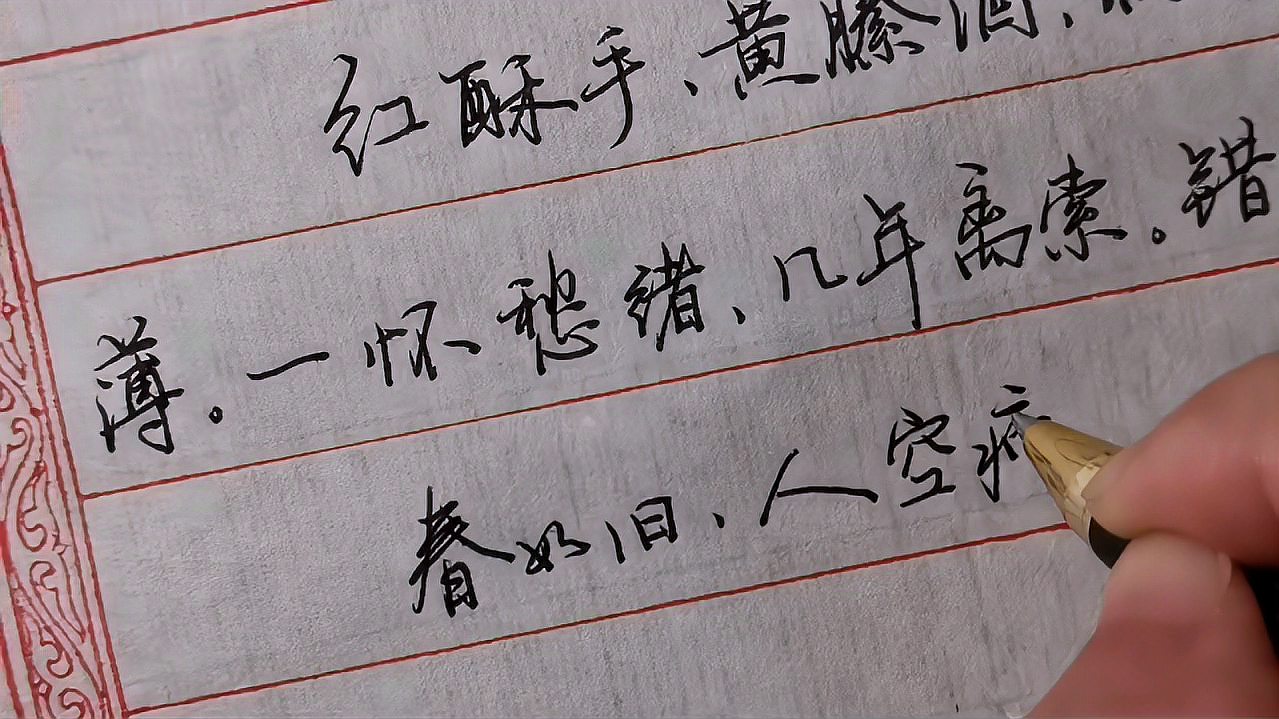 红酥手、黄縢酒、
薄。一怀愁绪、几年离索。错
春如旧、人空